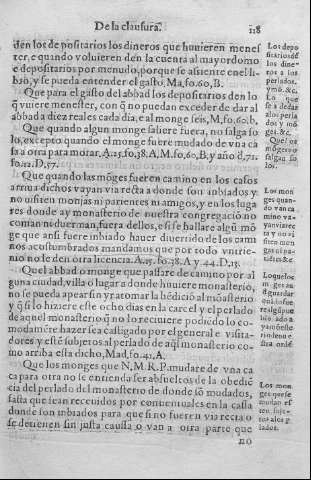 De la clausura.
118
den los depositarios los dineros que huuieren menes
ter, e quando voluieren den la cuenta al mayordomo
e depositarios por menudo, porque se assiente enel li-
bro, y se pueda entender el gasto. Ma, fo. 60, B.
Que para el gasto del abbad los depositarios den lo
q̃ vuiere menester, con q̃ no puedan exceder de dar al
abbad a diez reales cada dia, e al monge seis, M, fo. 60. b.
Que quando algun monge saliere fuera, no salga so
lo, excepto quando el monge fuere mudado de vna ca
sa a otra para morar. A. 15. fo, 38. A, M, fo. 60, B, y año
fo. 12. D, 57.
Que quando las mõges fueren camino en los casos
arriua dichos vayan via recta a donde son inbiados y
no uisiten monjas ni parientes ni amigos, y en los luga
res donde ay monasterio de nuestra congregació no
coman ni duerman, fuera dellos, e si se hallare algũ mõ
ge que ansi fuere inbiado hauer diuertido de los cami
nos acostumbrados mandamos que por todo
nio no le den otra licencia. A. 15. fo. 38. A y 44. D. 15.
Quel abbad o monge que passare de camino por al
guna ciudad, villa o lugar a donde huuiere monasterio,
no se pueda apearsin yr a tomar la bédició al mõasterio
y q̃ si lo hiziere este ocho dias en la carcel y el perlado
de aquel monasterio q̃ no lo reciuiere podiédo lo co-
modamẽre hazer sea castigado por el general e visita-
dores y esté subjetos al perlado de aq̃l monasterio co-
mo arriba esta dicho, Mad, fo. 41, A.
Que los monges que N, M, R. P. mudare de vna ca
ca para otra no se entienda ser absueltos de la obediẽ
cia del perlado del monasterio de donde sõ mudados,
fasta que sean receuidos por conuentuales en la cassa
donde son inbiados para que si no fueren via recta o
se detienen sin justa caussa o van a otra parte que
no
Los depo
sitarios dẽ
los dine-
ros a los
perlados,
ymõ. &c.
Lo que
se a de dar
a los perla
dos y mõ
ges. &c.
Quel os
mõges no
salgan so
los.
Los mon
ges quan-
do van ca
mino va-
yan via rec
ta y no vi
siten mon
gas ni pa-
rientes &c
Lo que los
mõges an
de guardar
quando fue
re algũ
lido a don
de vuiesse
monaste
rio nuest
Los mon
ges que se
mudan es
ten sujetos
a los per
lados.